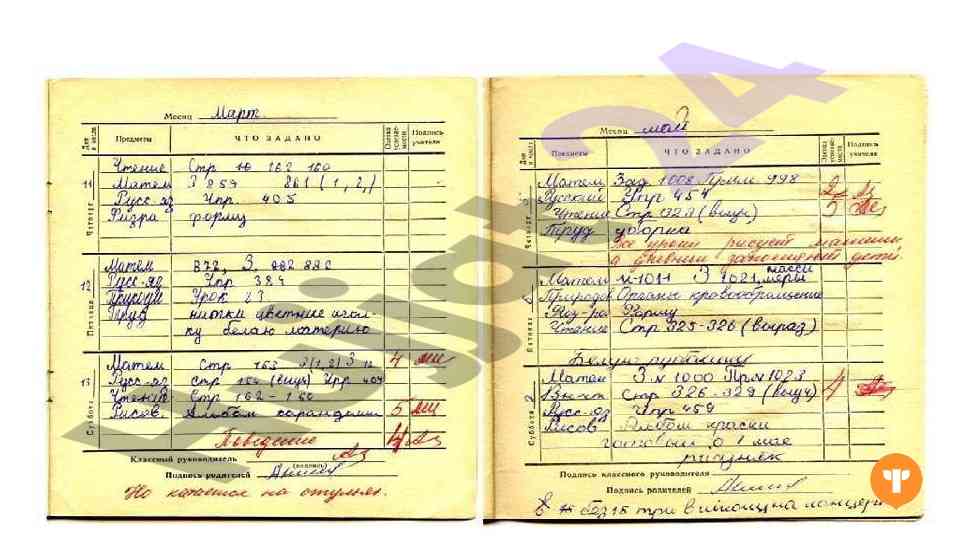 Месяц Март
Дни и числа Предметы ЧТО ЗАДАНО Оценка успеваемости Подпись учителя
11 Четверг
Чтение Стр 162 160
Матем З 859 861 (1, 2,)
Русс-яз Упр. 405
Физра форму
12 Пятница
Матем 872, З. 882 880
Русс-яз Упр 384
Урок 23
Труд нитки цветные игол-
ку белаю материю
13 Суббота
Матем Стр 163 3(1,2) З 12 4
Русс-яз стр 164 (выуч) Упр 404
Чтение Стр 162 - 160
Рисов Альбом карандаши 5
Поведение 4
Классный руководитель
(подпись)
Подпись родителей
Но катается на стульях.
Месяц май
Дни и числа Предметы ЧТО ЗАДАНО Оценка успеваемости Подпись учителя
Четверг
Матем Зад 1008 Прим 998 2
Русский Упр 454 5
Чтение Стр 323 (выуч)
Труд уборка
На уроках рисует машины,
а дневник заполненный детей.
Пятница
Матем № 1011 З 1021, массы меры
Природов Органы кровообращение
Физ-ра Форму
Чтение Стр 325-326 (выраз)
Белую рубашку
Суббота
Матем З № 1000 Пр № 1023 4
Стр 326-329 (выуч)
Русс-яз Упр 459
Рисов Альбом краски
1 мае
рисунок
Подпись классного руководителя
Подпись родителей
три